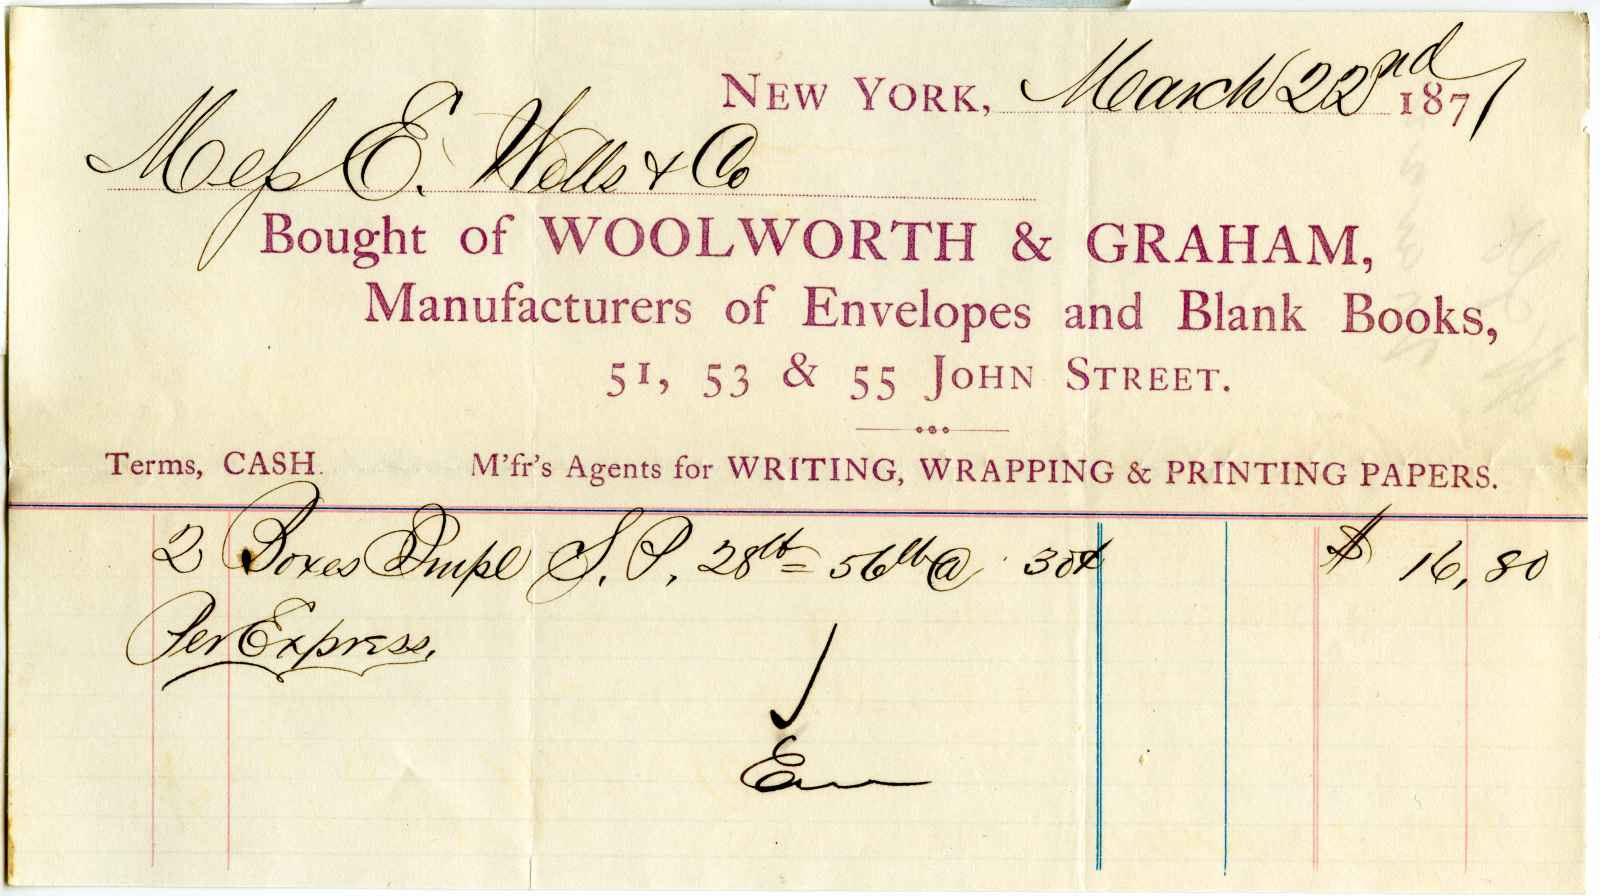 New York, March 22nd 1877
Mess E. Wells & Co
Bought of WOOLWORTH & GRAHAM,
Manufacturers of Envelopes and Blank Books,
51, 53 & 55 John Street.
Terms, CASH. M'fr's Agents for WRITING, WRAPPING & PRINTING PAPERS.
2 Boxes Impl S. P. 28lb = 56lb @ 30¢ $ 16,80
Per Express.